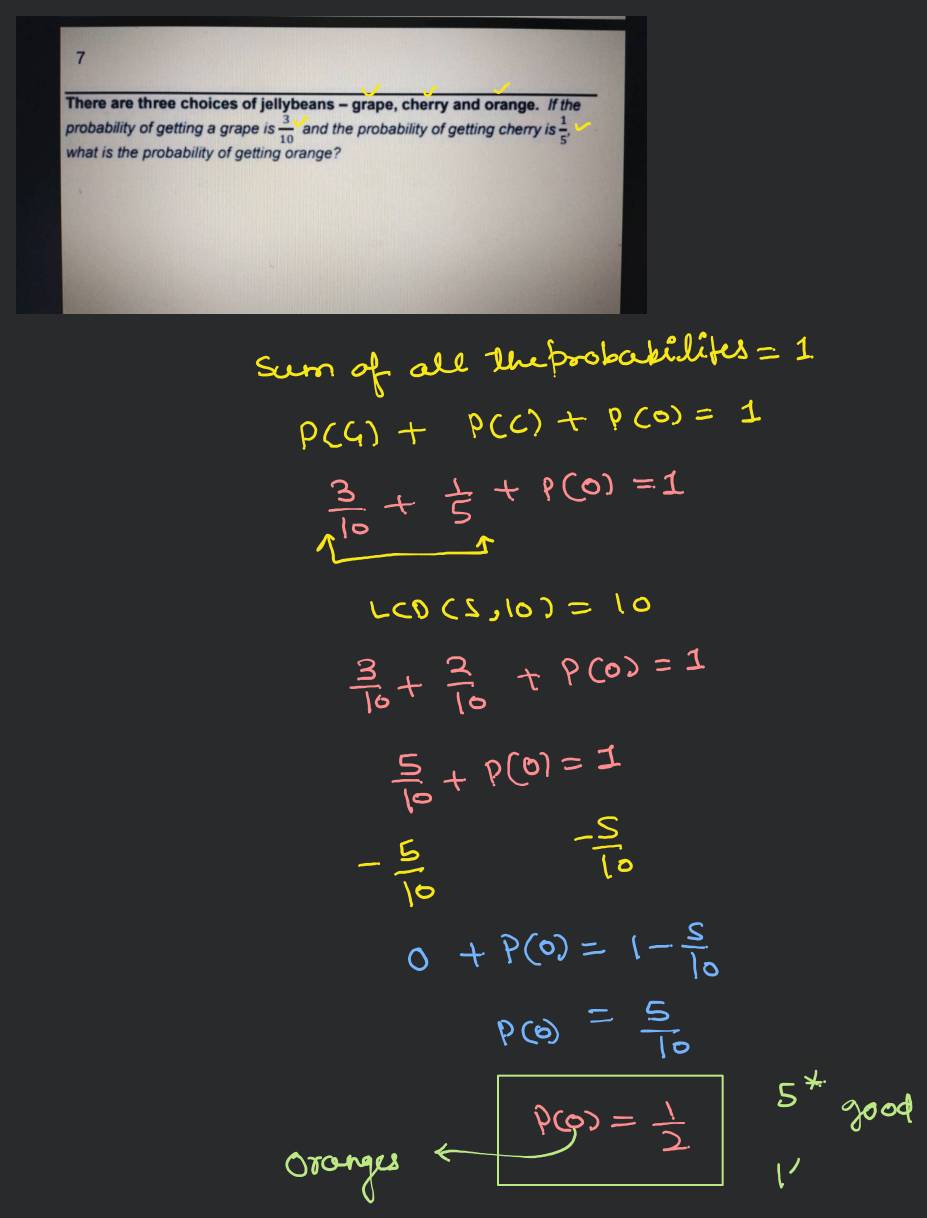 7
There are three choices of jellybeans – grape, cherry and orange. If the
probability of getting a grape is 3/10 and the probability of getting cherry is 1/5,
what is the probability of getting orange?
Sum of all the probabilities = 1
P(G) + P(C) + P(O) = 1
3/10 + 1/5 + P(O) = 1
LCD (5,10) = 10
3/10 + 2/10 + P(O) = 1
5/10 + P(O) = 1
- 5/10 -5/10
0 + P(O) = 1 - 5/10
P(O) = 5/10
P(O) = 1/2
Oranges
5* good